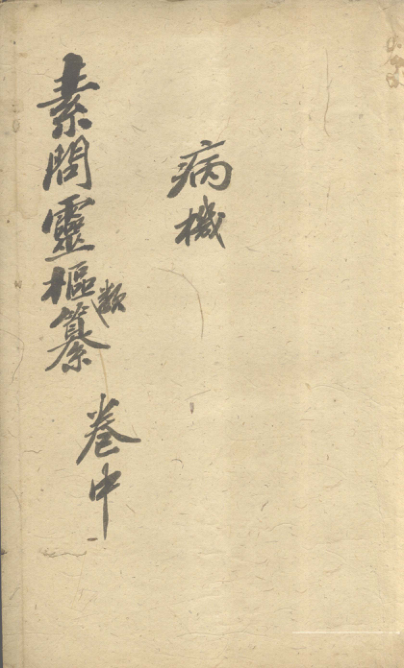 病機
素問靈樞類纂 卷中